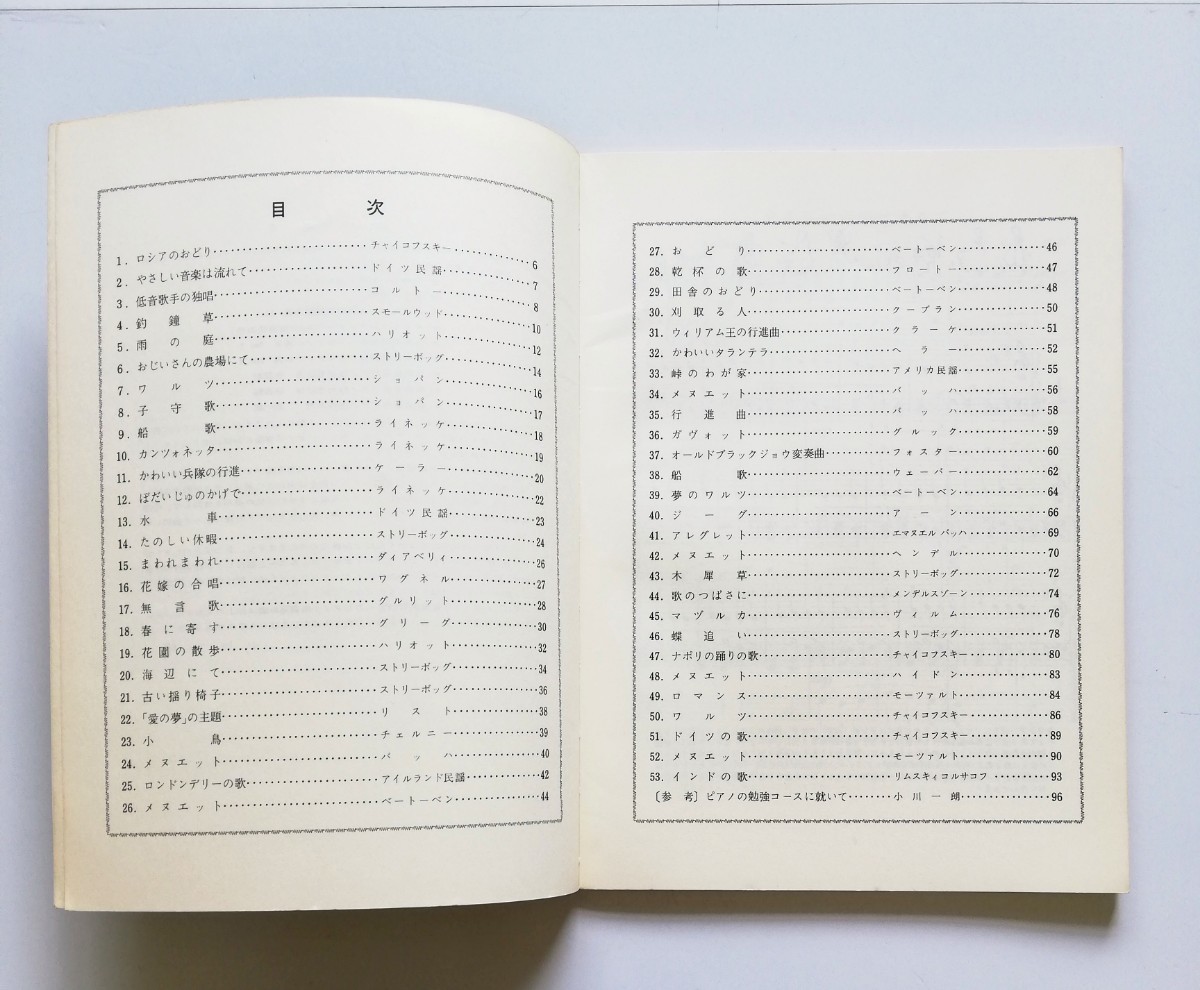 目次
1. ロシアのおどり……チャイコフスキー……6
2. やさしい音楽は流れて……ドイツ民謡……7
3. 低音歌手の独唱……コルトー……8
4. 釣鐘草……スモールウッド……10
5. 雨の庭……ハリオット……12
6. おじいさんの農場にて……ストリーボッグ……14
7. ワルツ……ショパン……16
8. 子守歌……ショパン……17
9. 船歌……ライネッケ……18
10. カンツォネッタ……ライネッケ……19
11. かわいい兵隊の行進……ケーラー……20
12. ぼだいじゅのかげで……ライネッケ……22
13. 水車……ドイツ民謡……23
14. たのしい休暇……ストリーボッグ……24
15. まわれまわれ……ディアベリィ……26
16. 花嫁の合唱……ワグネル……27
17. 無言歌……グルリット……28
18. 春に寄す……グリーグ……30
19. 花園の散歩……ハリオット……32
20. 海辺にて……ストリーボッグ……34
21. 古い揺り椅子……ストリーボッグ……36
22. 「愛の夢」の主題……リスト……38
23. 小鳥……チェルニー……39
24. メヌエット……バッハ……40
25. ロンドンデリーの歌……アイルランド民謡……42
26. メヌエット……ベートーベン……44
27. おどり……ベートーベン……46
28. 乾杯の歌……フロートー……47
29. 田舎のおどり……ベートーベン……48
30. 刈取る人……クープラン……50
31. ウィリアム王の行進曲……クラーケ……51
32. かわいいタランテラ……ヘラー……52
33. 峠のわが家……アメリカ民謡……55
34. メヌエット……バッハ……56
35. 行進曲……バッハ……58
36. ガヴォット……グルック……59
37. オールドブラックジョウ変奏曲……フォスター……60
38. 船歌……ウェーバー……62
39. 夢のワルツ……ベートーベン……64
40. ジーグ……アーン……66
41. アレグレット……エマヌエル バッハ……69
42. メヌエット……ヘンデル……70
43. 木犀草……ストリーボッグ……72
44. 歌のつばさに……メンデルスゾーン……74
45. マヅルカ……ヴィルム……76
46. 蝶追い……ストリーボッグ……78
47. ナポリの踊りの歌……チャイコフスキー……80
48. メヌエット……ハイドン……83
49. ロマンス……モーツァルト……84
50. ワルツ……チャイコフスキー……86
51. ドイツの歌……チャイコフスキー……89
52. メヌエット……モーツァルト……90
53. インドの歌……リムスキィコルサコフ……93
〔参考〕ピアノの勉強コースに就いて……小川一朗……96